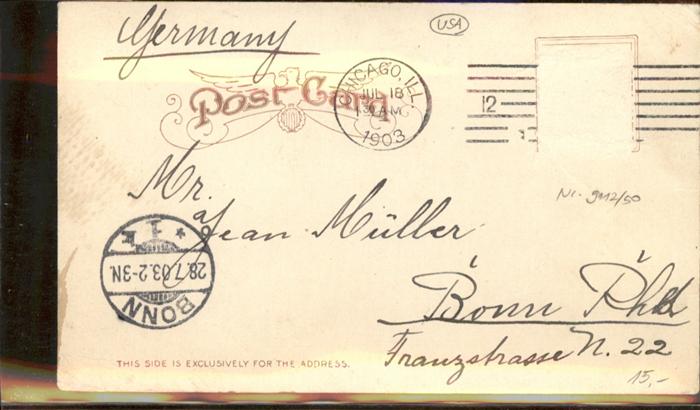 Germany
USA
Post Card
CHICAGO, ILL.
JUL 18
1903
12
Nr. 9112/50
Mr.
Jean Müller
Bonn Rhld
Franzstrasse N. 22
BONN
28.7.03.2-3N.
THIS SIDE IS EXCLUSIVELY FOR THE ADDRESS.
15,-